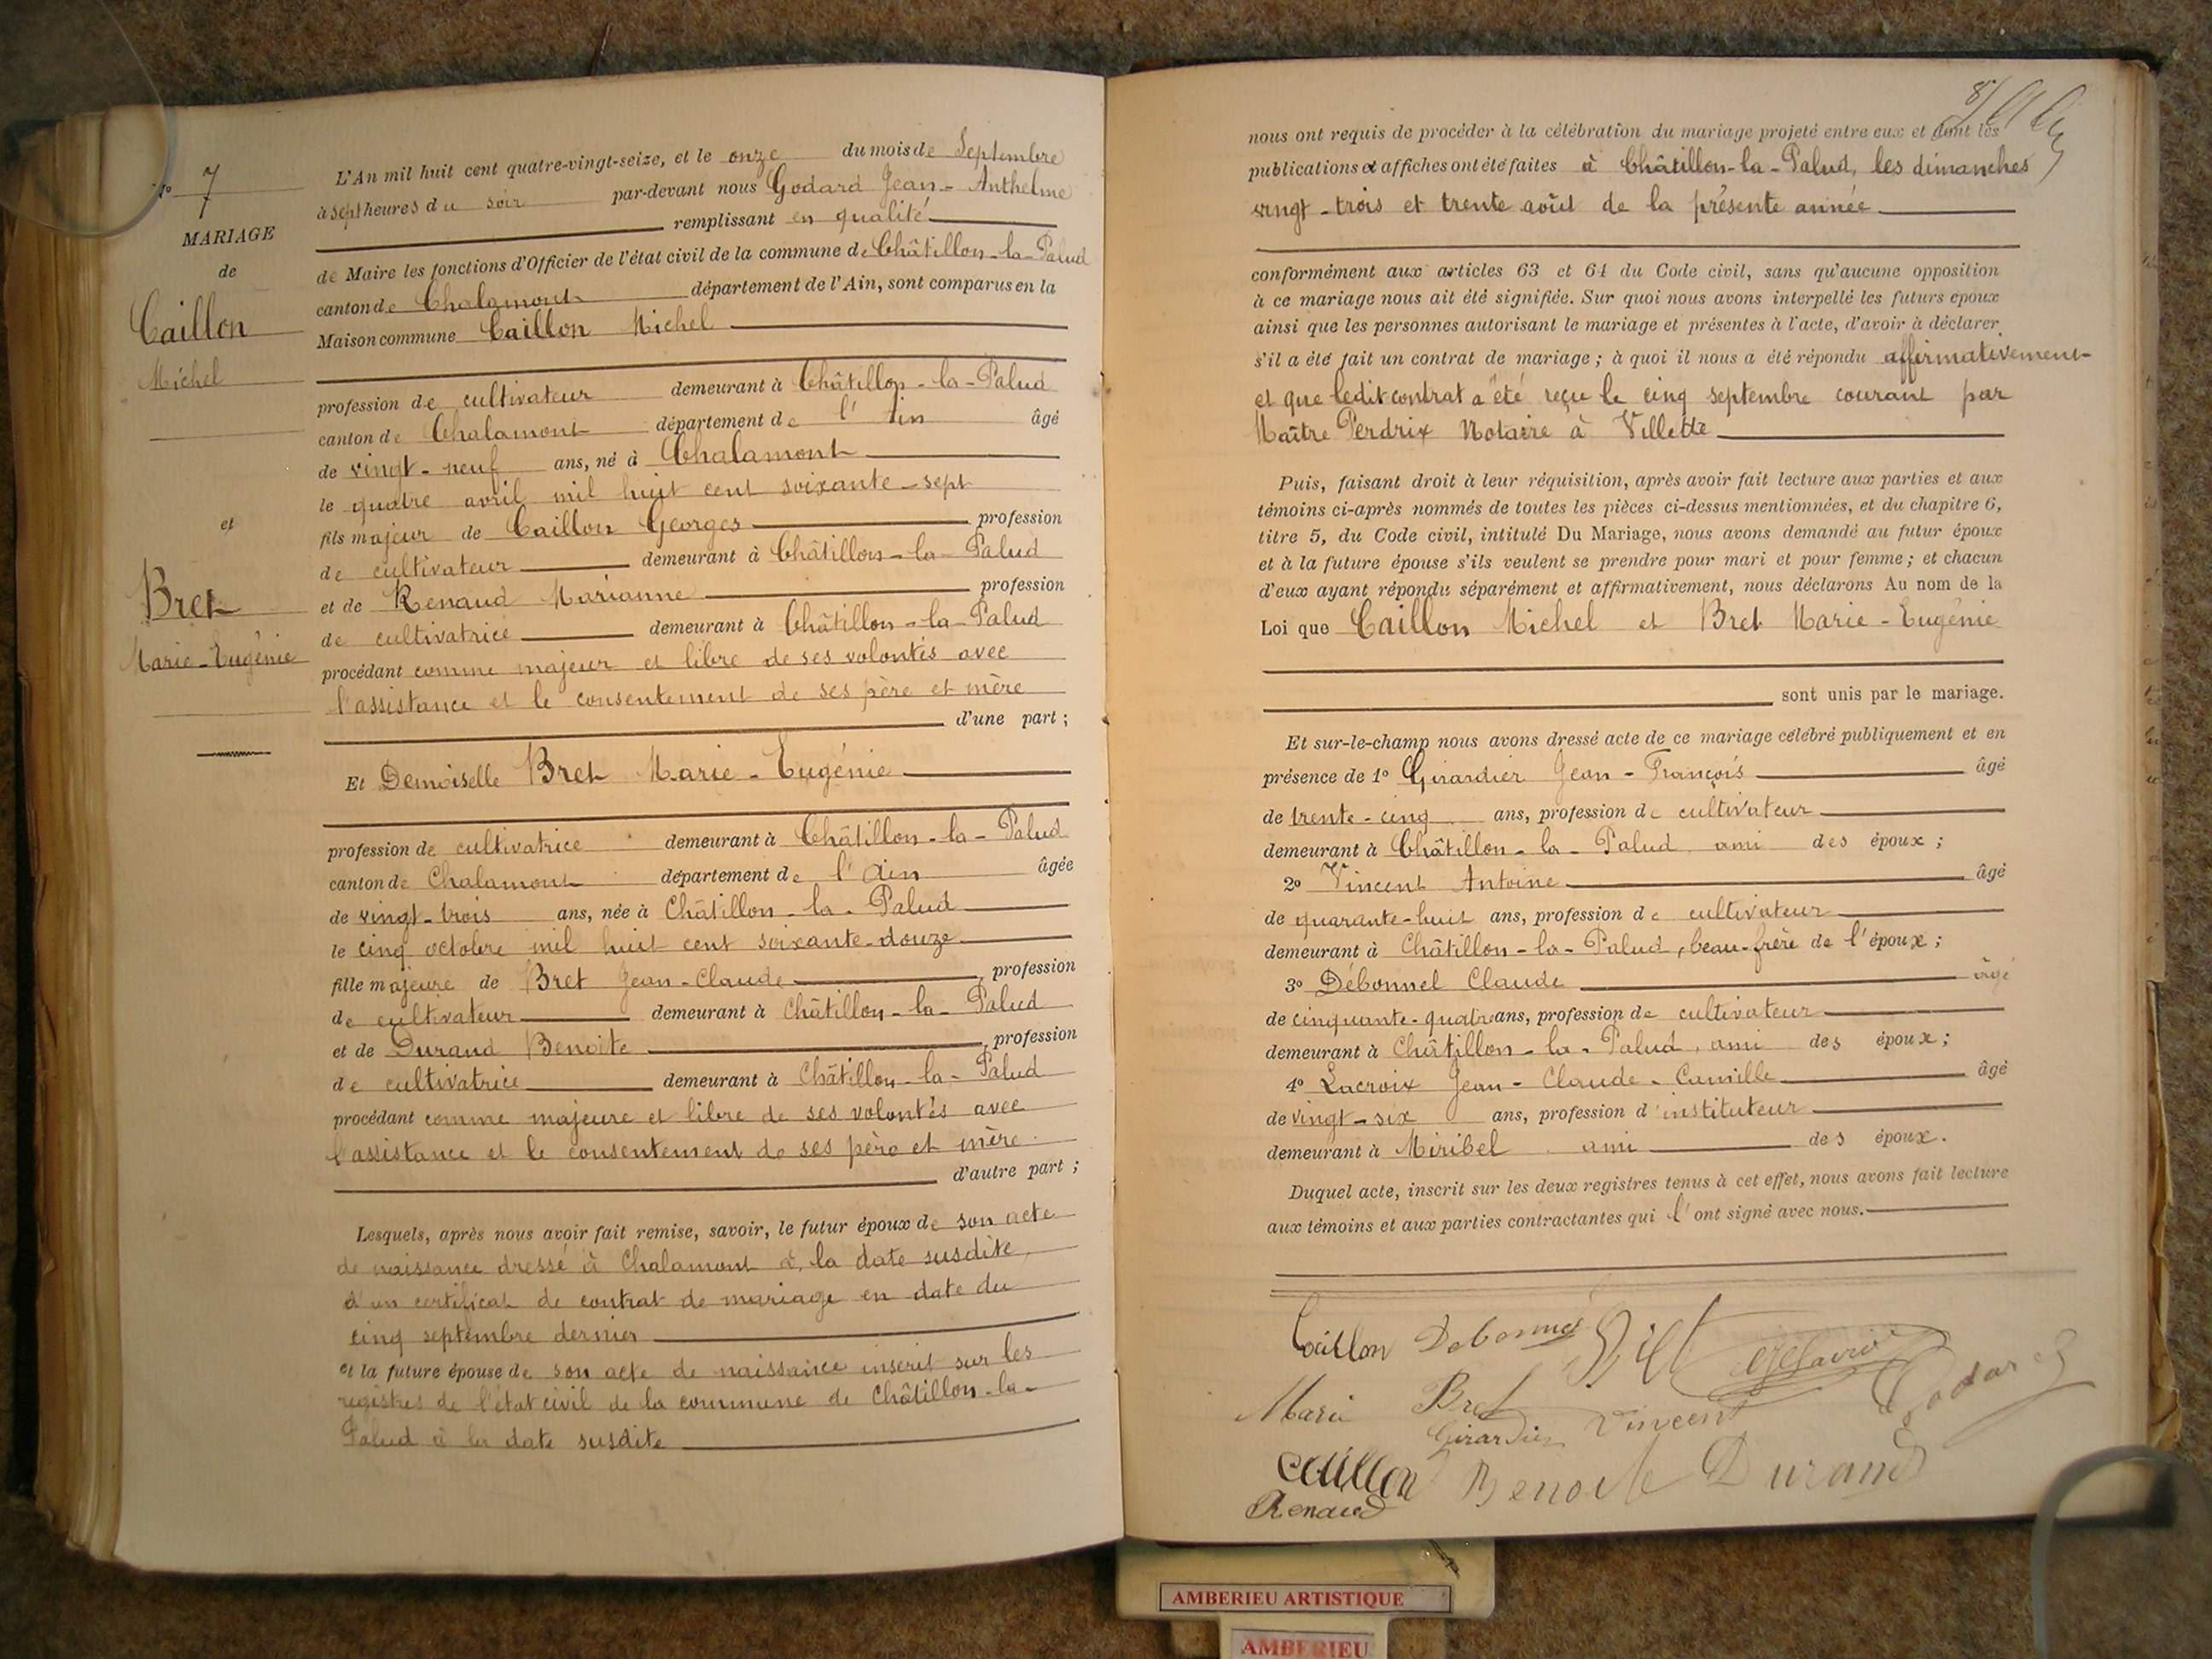 No 7
MARIAGE
de
Caillon
Michel
et
Bret
Marie-Eugénie
L'An mil huit cent quatre-vingt-seize, et le onze du mois de Septembre
à sept heures du soir par-devant nous Godard Jean-Anthelme
remplissant en qualité
de Maire les fonctions d'Officier de l'état civil de la commune de Châtillon-la-Palud
canton de Chalamont département de l'Ain, sont comparus en la
Maison commune Caillon Michel
profession de cultivateur demeurant à Châtillon-la-Palud
canton de Chalamont département de l'Ain âgé
de vingt-neuf ans, né à Chalamont
le quatre avril mil huit cent soixante-sept
fils majeur de Caillon Georges profession
de cultivateur demeurant à Châtillon-la-Palud
et de Renaud Marianne profession
de cultivatrice demeurant à Châtillon-la-Palud
procédant comme majeur et libre de ses volontés avec
l'assistance et le consentement de ses père et mère
d'une part ;
Et Demoiselle Bret Marie-Eugénie
profession de cultivatrice demeurant à Châtillon-la-Palud
canton de Chalamont département de l'Ain âgée
de vingt-trois ans, née à Châtillon-la-Palud
le cinq octobre mil huit cent soixante-douze
fille majeure de Bret Jean-Claude, profession
de cultivateur demeurant à Châtillon-la-Palud
et de Durand Benoite, profession
de cultivatrice demeurant à Châtillon-la-Palud
procédant comme majeure et libre de ses volontés avec
l'assistance et le consentement de ses père et mère
d'autre part ;
Lesquels, après nous avoir fait remise, savoir, le futur époux de son acte
de naissance dressé à Chalamont à la date susdite,
d'un certificat de contrat de mariage en date du
cinq septembre dernier
et la future épouse de son acte de naissance inscrit sur les
registres de l'état civil de la commune de Châtillon-la-
Palud à la date susdite
8
nous ont requis de procéder à la célébration du mariage projeté entre eux et dont les
publications et affiches ont été faites à Châtillon-la-Palud, les dimanches
vingt-trois et trente août de la présente année
conformément aux articles 63 et 64 du Code civil, sans qu'aucune opposition
à ce mariage nous ait été signifiée. Sur quoi nous avons interpellé les futurs époux
ainsi que les personnes autorisant le mariage et présentes à l'acte, d'avoir à déclarer
s'il a été fait un contrat de mariage ; à quoi il nous a été répondu affirmativement
et que ledit contrat a été reçu le cinq septembre courant par
Maître Perdrix Notaire à Villette
Puis, faisant droit à leur réquisition, après avoir fait lecture aux parties et aux
témoins ci-après nommés de toutes les pièces ci-dessus mentionnées, et du chapitre 6,
titre 5, du Code civil, intitulé Du Mariage, nous avons demandé au futur époux
et à la future épouse s'ils veulent se prendre pour mari et pour femme ; et chacun
d'eux ayant répondu séparément et affirmativement, nous déclarons Au nom de la
Loi que Caillon Michel et Bret Marie-Eugénie
sont unis par le mariage.
Et sur-le-champ nous avons dressé acte de ce mariage célébré publiquement et en
présence de 1o Girardier Jean-François âgé
de trente-cinq ans, profession de cultivateur
demeurant à Châtillon-la-Palud, ami des époux ;
2o Vincent Antoine âgé
de quarante-huit ans, profession de cultivateur
demeurant à Châtillon-la-Palud, beau-frère de l'époux ;
3o Débonnel Claude âgé
de cinquante-quatre ans, profession de cultivateur
demeurant à Châtillon-la-Palud, ami des époux ;
4o Lacroix Jean-Claude-Camille âgé
de vingt-six ans, profession d'instituteur
demeurant à Miribel ami des époux.
Duquel acte, inscrit sur les deux registres tenus à cet effet, nous avons fait lecture
aux témoins et aux parties contractantes qui l'ont signé avec nous.
Caillon Debonnel
Marie Bret Godard
Girardier Vincent
Caillon Benoite Durand
Renaud
AMBERIEU ARTISTIQUE
AMBERIEU